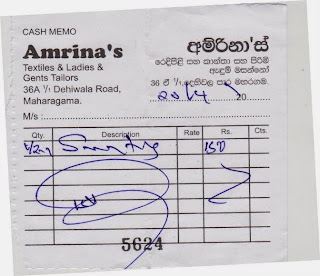 CASH MEMO
Amrina's
Textiles & Ladies &
Gents Tailors
36A 1/1 Dehiwala Road,
Maharagama.
අම්රිනා'ස්
රෙදිපිළි සහ කාන්තා සහ පිරිමි
ඇඳුම් මසන්නෝ
36 ඒ 1/1 දෙහිවල පාර මහරගම.
2014 20
M/s :
Qty. Description Rate Rs. Cts.
150
5624